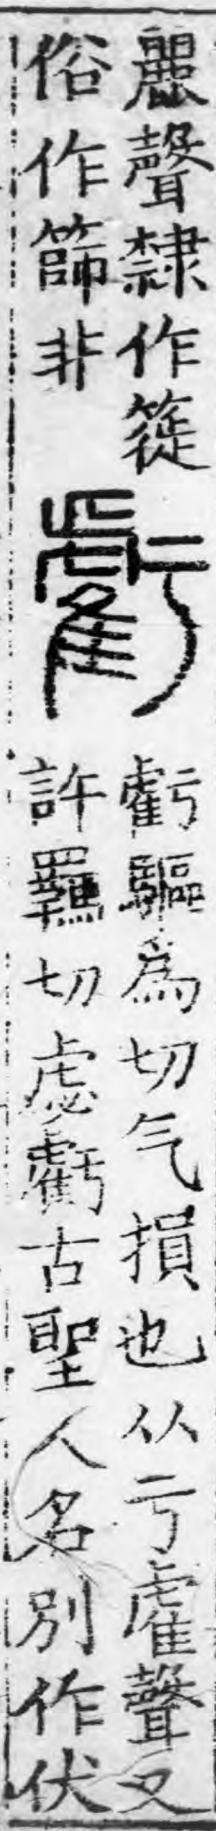 麗聲隸作簁
俗作篩非
虧
虧驅為切气損也从亏雐聲又
許羈切虙虧古聖人名別作伏